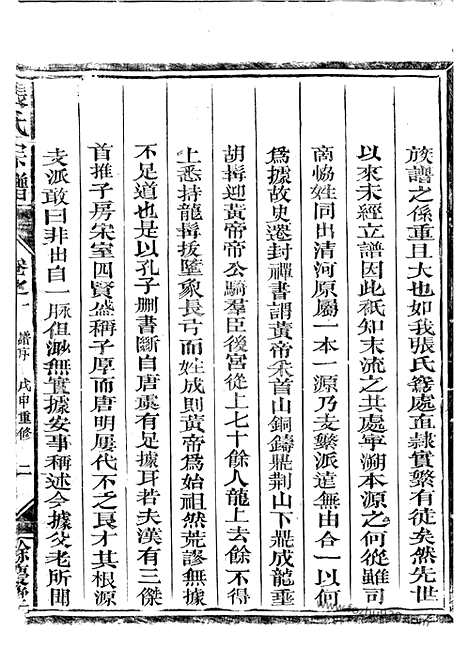 族譜之係重且大也如我張氏鴌處直隷實繁有徒矣然先世
以來未經立譜因此祇知末流之共處寧溯本源之何從雖司
商協姓同出清河原屬一本一源乃支繁派遠無由合一以何
爲據故史遷封禪書謂黃帝采首山銅鑄鼎荆山下鼎成龍垂
胡髯迎黃帝帝公騎羣臣後宮從上七十餘人龍上去餘不得
上悉持龍髯拔墮象長弓而姓成則黃帝爲始祖然荒謬無據
不足道也是以孔子删書斷自唐虞有足據耳若夫漢有三傑
首推子房宋室四賢盛稱子厚而唐明屢代不之良才其根源
支派敢曰非出自一脈但派無實據安事稱述今據父老所聞
氏宗譜
卷之一
譜序
戊申重修
二